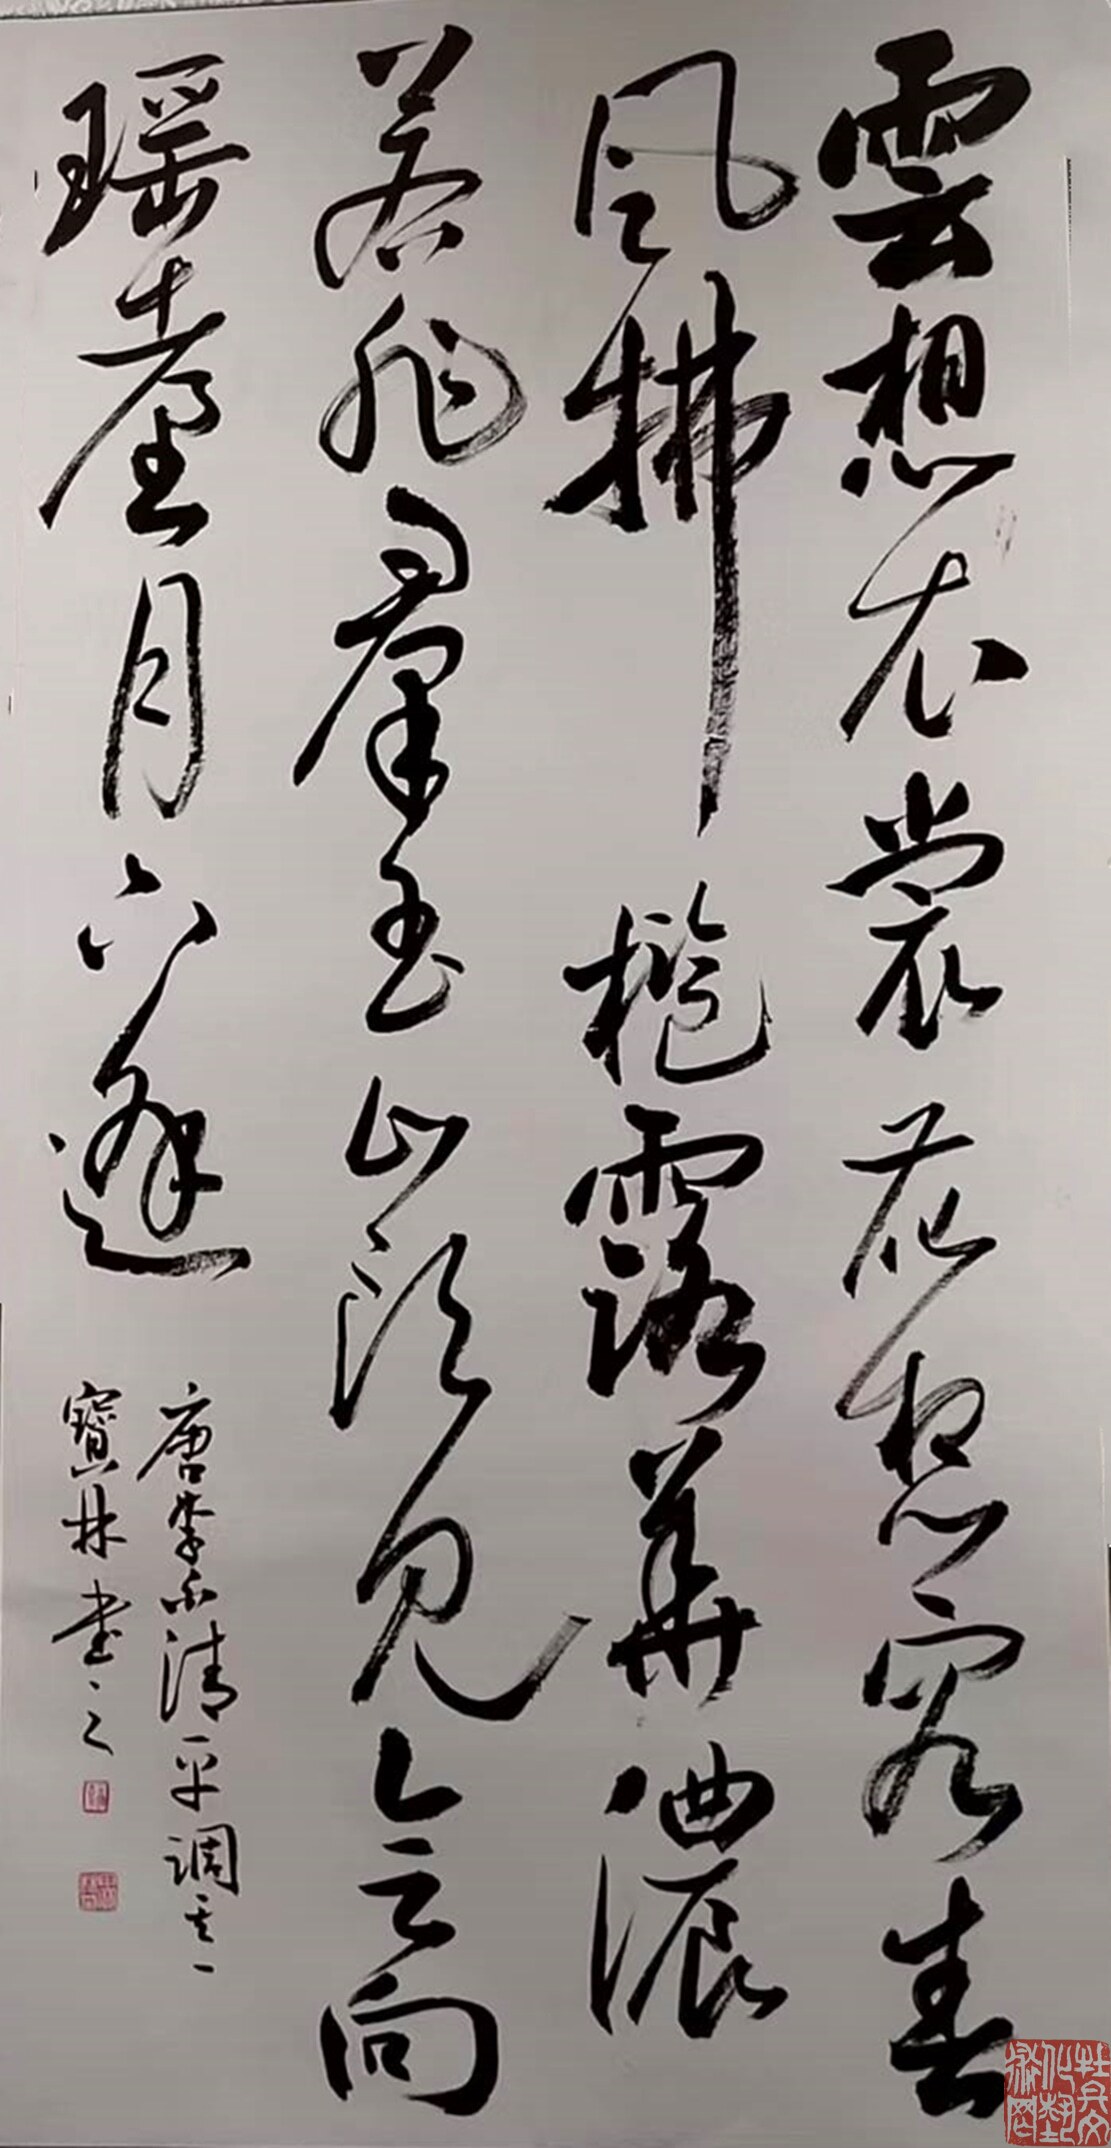 雲想衣裳花想容春
風拂檻露華濃
若非羣玉山頭見會向
瑤臺月下逢
唐李白清平調其一
寶林書之